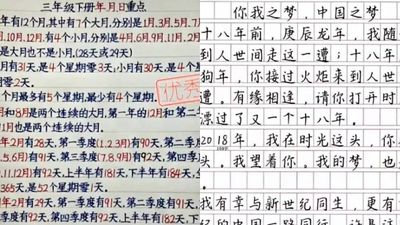 三年级下册年、月、日重点
年有12个月,其中有7个大月,分别是1月、3月、5月、7月
月、10月、12月,有4个小月,分别是4月、6月、9月、
是大月也不是小月,(28天或29天)
月有31天,是4个星期零3天;小月有30天,是4个星期
零2天。
个月最多有5个星期,最少有4个星期。
优秀
月和8月是两个连续的大月,第一年的12月和第二年
1月也是两个连续的大月。
年2月有28天,第一季度(1.2.3月)有90天,第二季
5.6月)有91天,第三季度(7.8.9月)有92天,
.11.12月)有92天,上半年有181天,下半年有184天,
365天,是52个星期零1天。
年2月有29天,第一季度有91天,第二季度有91天,
季度有92天,第四季度有92天,上半年有182天,下
你我之梦,中国之梦
十八年前,庚辰龙年,我随
到人世间走这一遭;十八年
狗年,你接过火炬来到人世
遭。有缘相逢,请你打开时
漂过了又一个十八年。
2018年,我在时光这头,你
头。我望着你。我的梦,也
我有幸与新世纪同生,更有